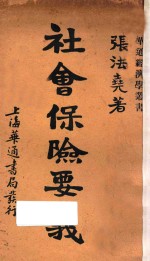 華通經濟學叢書
張法堯著
社會保險要義
上海華通書局發行